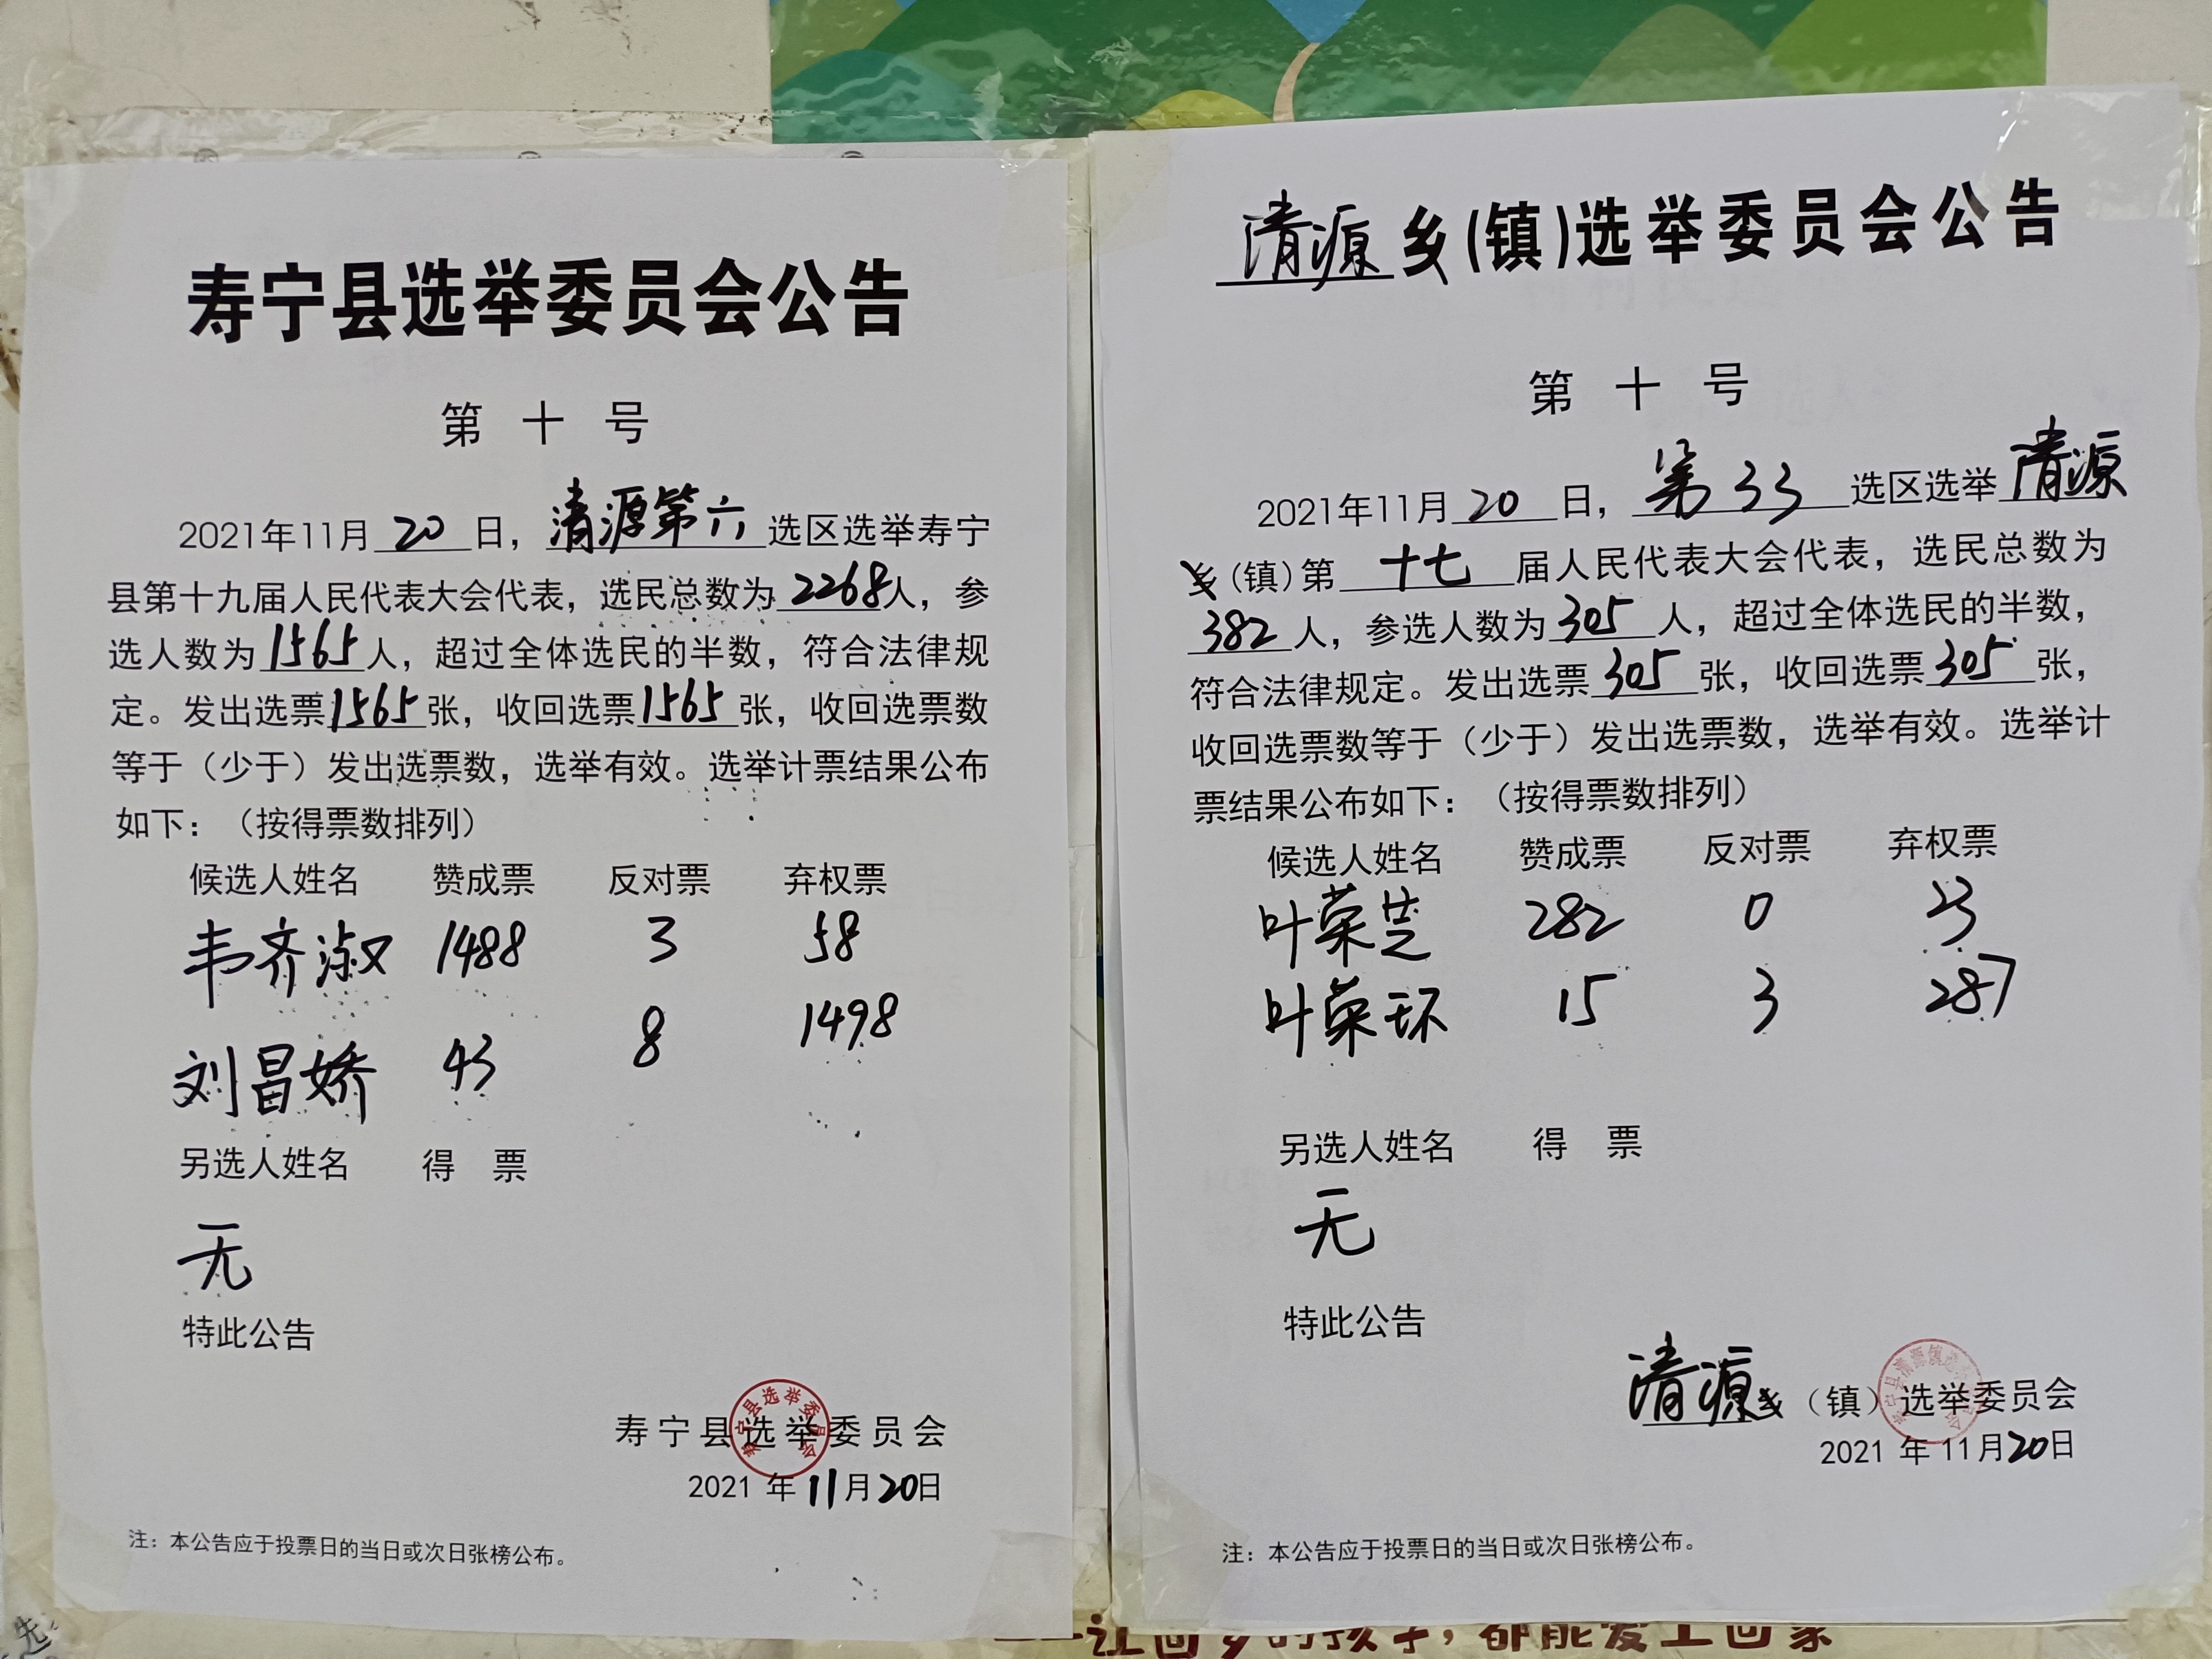 寿宁县选举委员会公告
第十号
2021年11月20日，清源第六选区选举寿宁
县第十九届人民代表大会代表，选民总数为2268人，参
选人数为1565人，超过全体选民的半数，符合法律规
定。发出选票1565张，收回选票1565张，收回选票数
等于（少于）发出选票数，选举有效。选举计票结果公布
如下：（按得票数排列）
候选人姓名 赞成票 反对票 弃权票
韦齐淑 1488 3 58
刘昌娇 43 8 1498
另选人姓名 得票
无
特此公告
寿宁县选举委员会
2021年11月20日
注：本公告应于投票日的当日或次日张榜公布。
清源乡(镇)选举委员会公告
第十号
2021年11月20日，第33选区选举清源
乡(镇)第十七届人民代表大会代表，选民总数为
382人，参选人数为305人，超过全体选民的半数，
符合法律规定。发出选票305张，收回选票305张，
收回选票数等于（少于）发出选票数，选举有效。选举计
票结果公布如下：（按得票数排列）
候选人姓名 赞成票 反对票 弃权票
叶荣芝 282 0 23
叶荣环 15 3 287
另选人姓名 得票
无
特此公告
清源乡（镇）选举委员会
2021年11月20日
注：本公告应于投票日的当日或次日张榜公布。
寿宁县选举委员会
让回乡的孩子，都能爱上回家